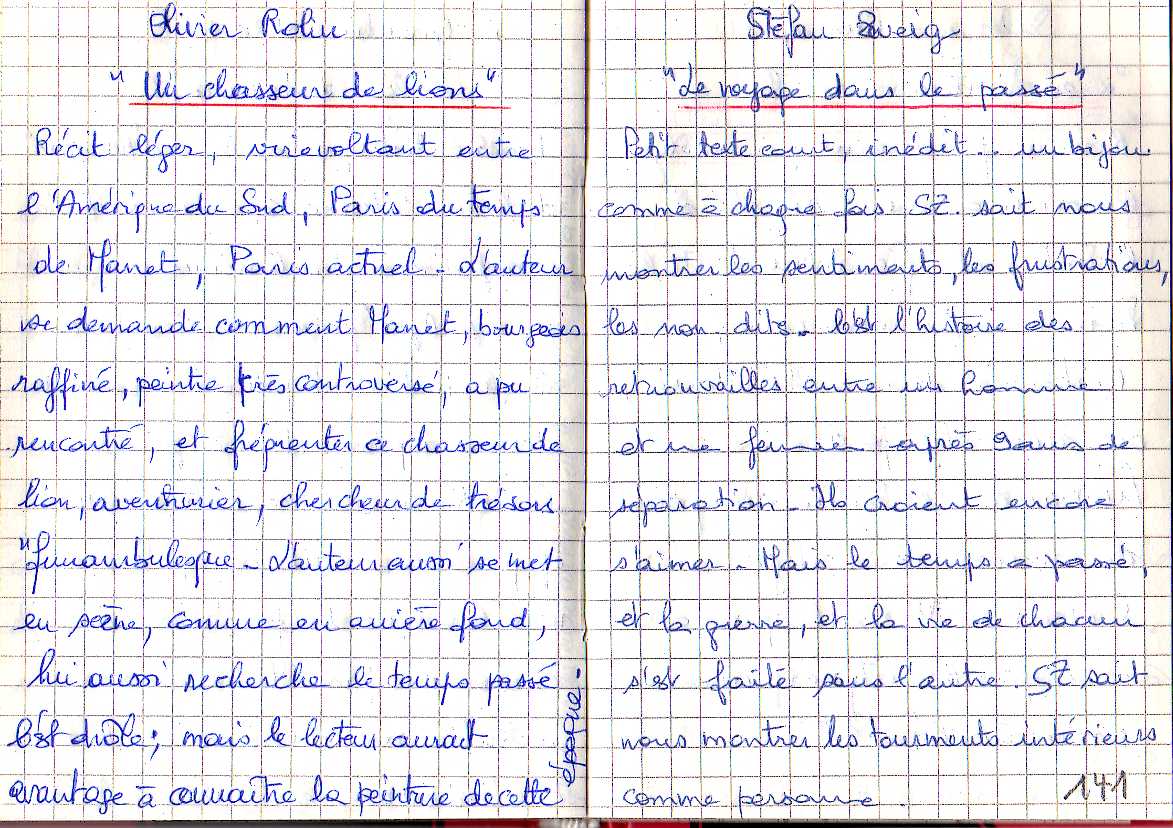 Olivier Rolin
"Un chasseur de lions"
Récit léger, virevoltant entre
l'Amérique du Sud, Paris du temps
de Manet, Paris actuel - L'auteur
se demande comment Manet, bourgeois
raffiné, peintre très controversé, a pu
rencontré, et fréquenter ce chasseur de
lion, aventurier, chercheur de trésors
"funambulesque - L'auteur aussi se met
en scène, comme en arrière fond,
lui aussi recherche le temps passé
C'est drôle; mais le lecteur aurait
avantage à connaître la peinture de cette
époque.
Stéfan Zweig
"Le voyage dans le passé"
Petit texte court, inédit.. un bijou
comme à chaque fois SZ. sait nous
montrer les sentiments, les frustrations,
les non. dits - C'est l'histoire des
retrouvailles entre un homme
et une femme après 9 ans de
séparation - Ils croient encore
s'aimer - Mais le temps a passé,
et la guerre, et la vie de chacun
s'est faite sans l'autre. SZ sait
nous montrer les tourments intérieurs
comme personne.
141